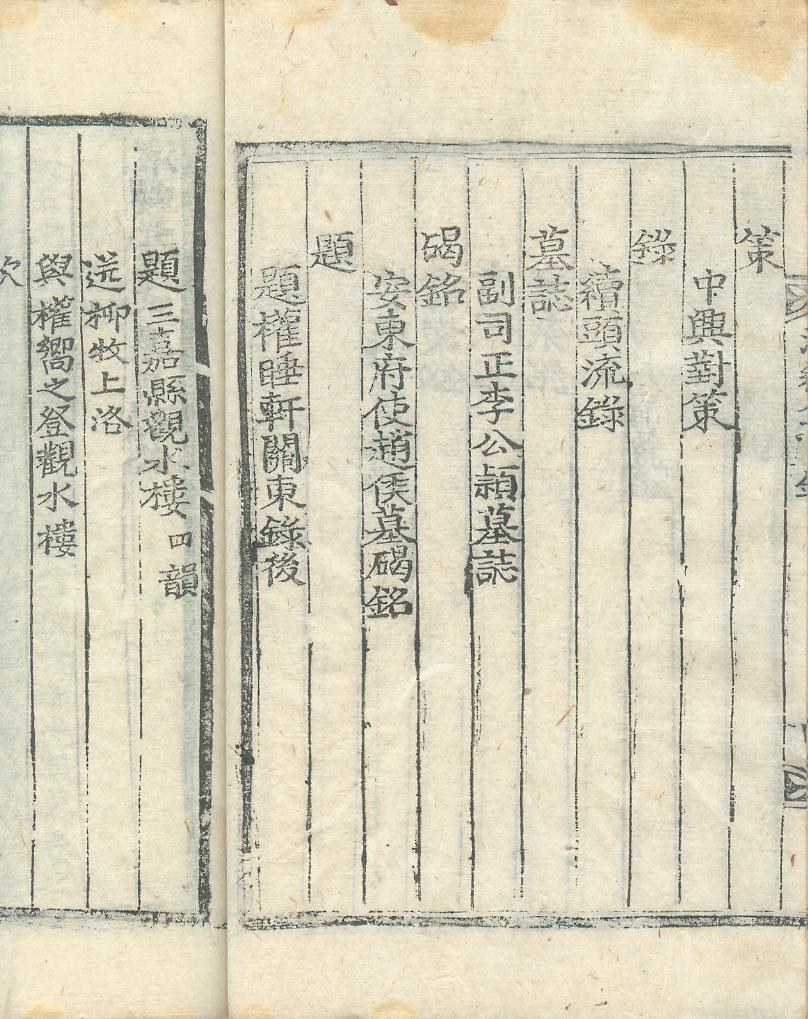 策
中興對策
錄
續頭流錄
墓誌
副司正李公頴墓誌
碣銘
安東府使趙侯墓碣銘
題
題權睡軒關東錄後
題三嘉縣觀水樓四韻
送柳牧上洛
與權嚮之登觀水樓
次